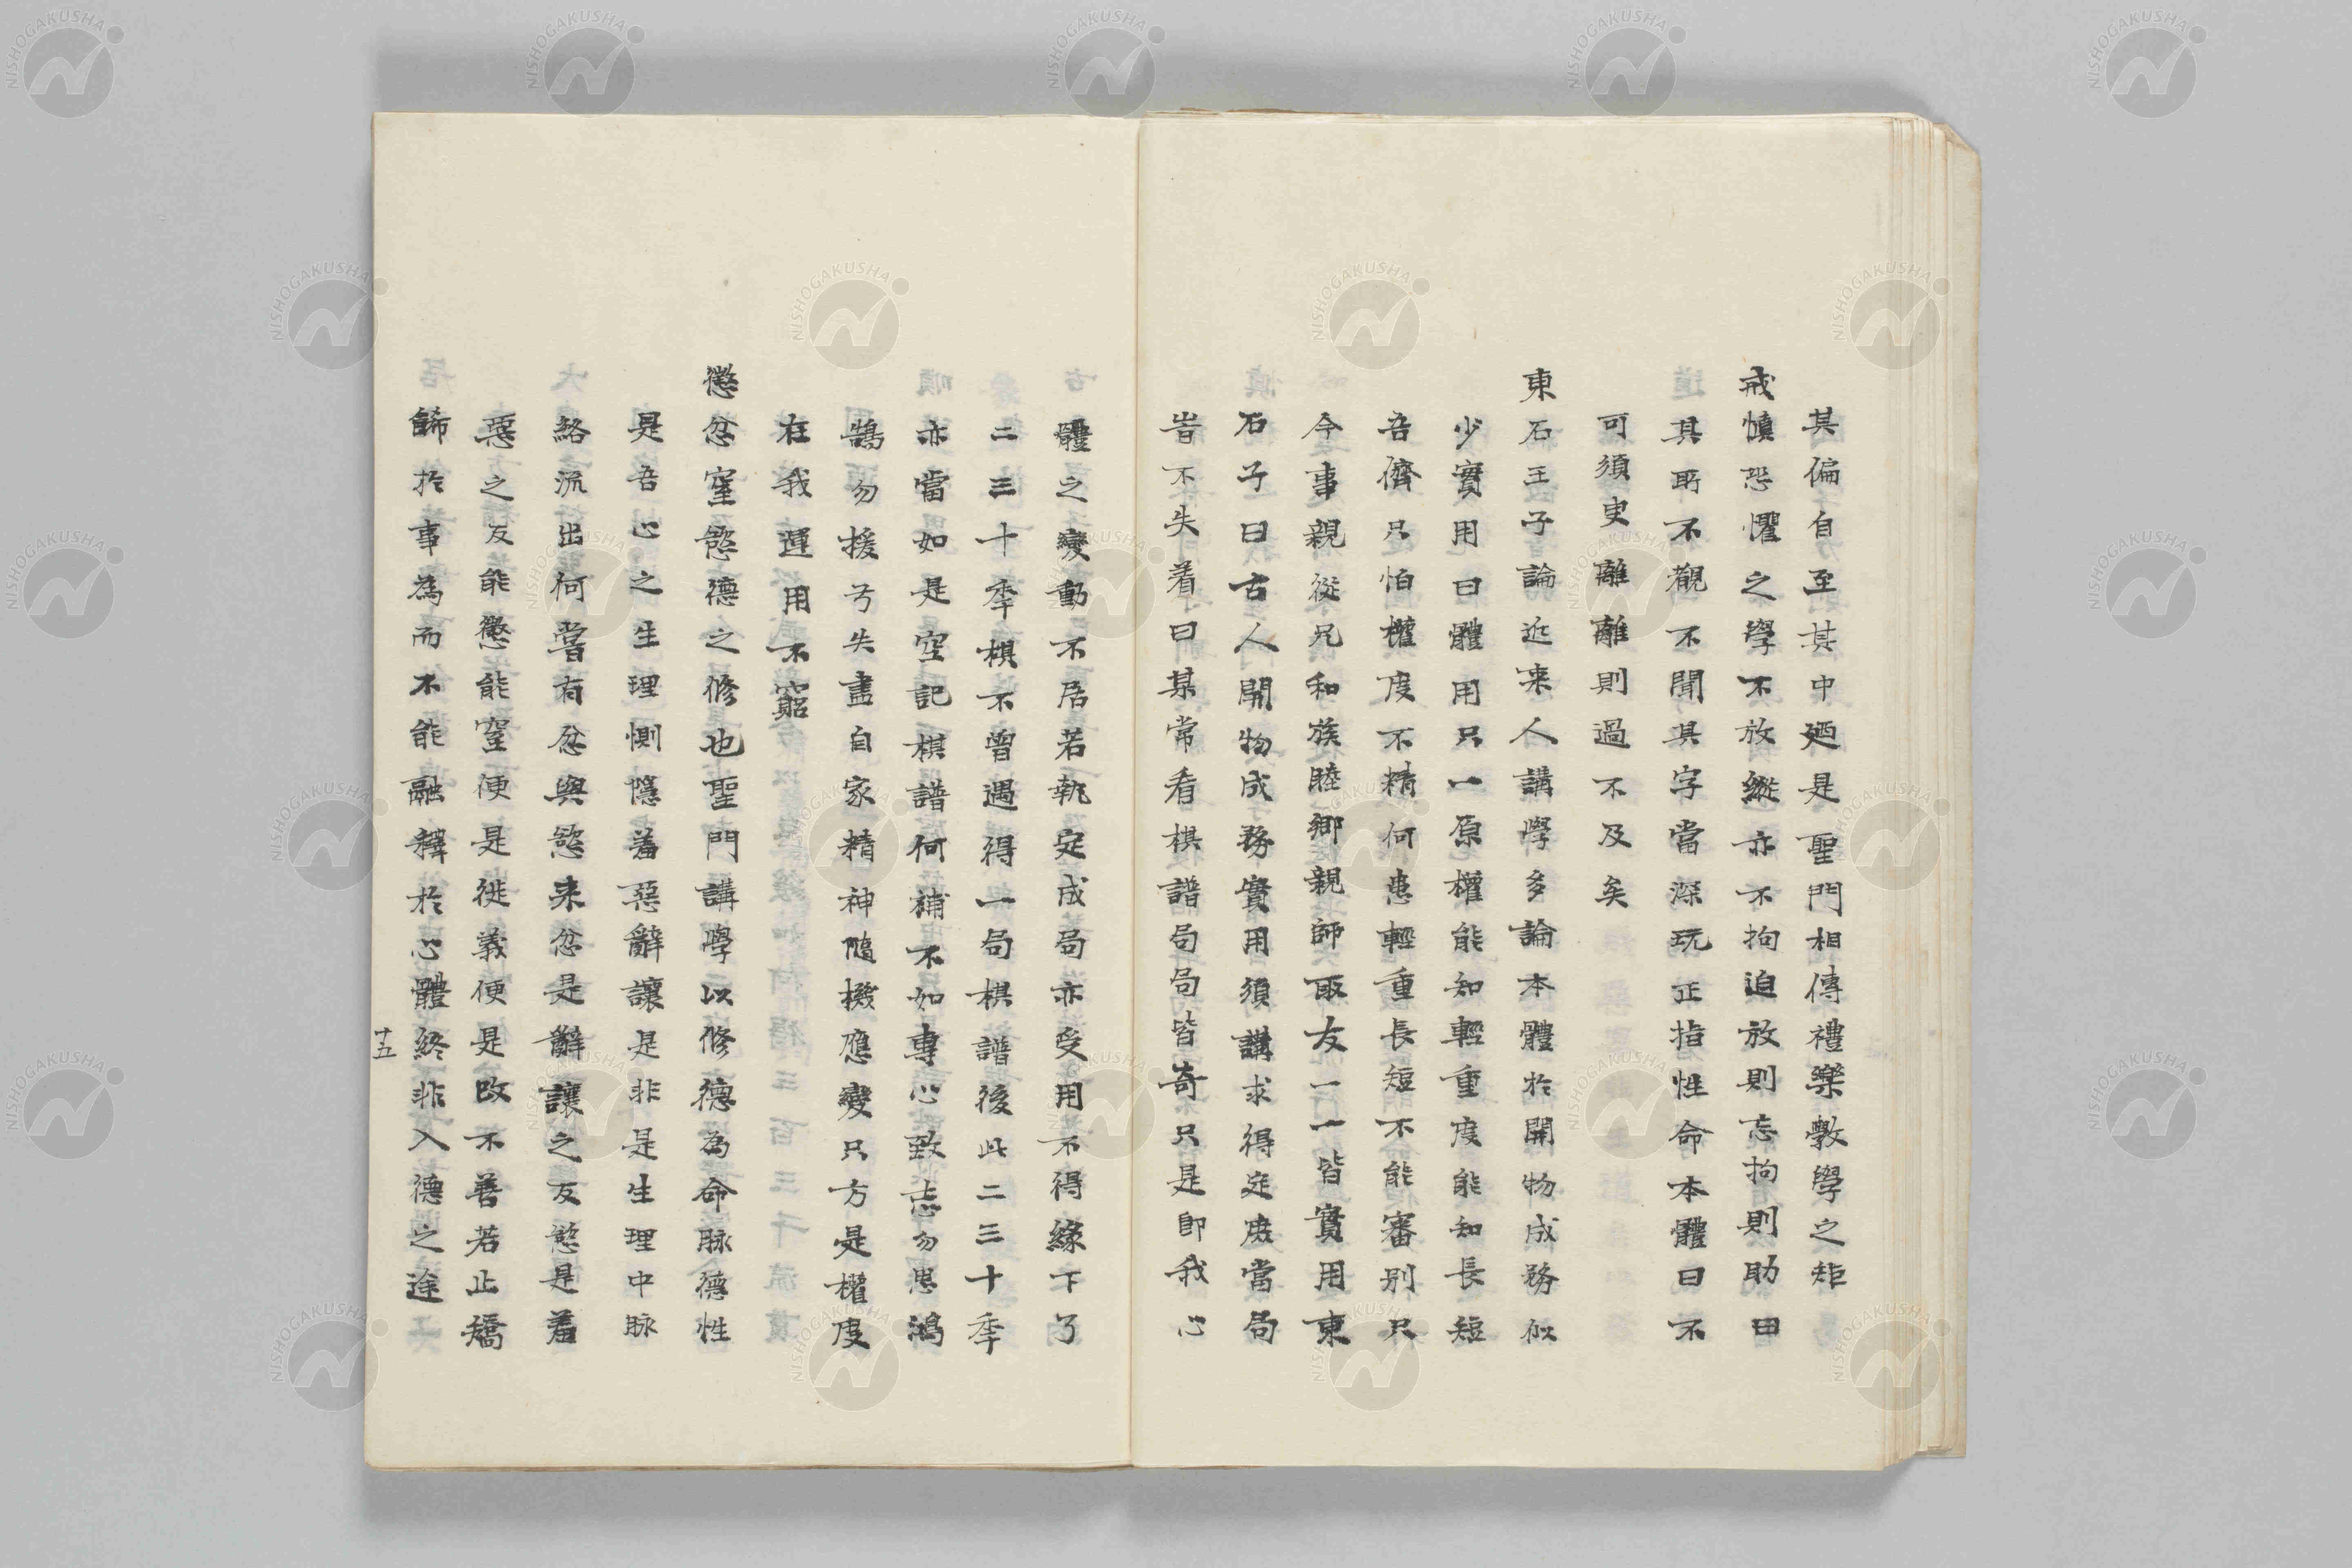 其偏自至其中廼是聖門相傳禮樂敎學之矩
戒慎恐懼之學不放縱亦不拘迫放則忘拘則助曰
其所不覩不聞其字當深玩正指性命本體曰不
可須臾離離則過不及矣
東石王子論近来人講學多論本體於開物成務似
少實用曰體用只一原權能知輕重度能知長短
吾儕只怕權度不精何患輕重長短不能審別只
今事親從兄和族睦鄉親師取友一一皆實用東
石子曰古人開物成務實用須講求得定庶當局
旹不失着曰某常看棋譜局局皆竒只是卽我心
體之變動不居若執定成局亦受用不得緣下了
二三十季棋不曾遇得一局棋譜後此二三十季
亦當如是空記棋譜何補不如專心致志勿思鴻
鵠勿援弓失盡自家精神隨機應變只方是權度
在我運用不窮
懲忿窒慾德之修也聖門講學以修德為命脉德性
是吾心之生理惻隱羞惡辭讓是非是生理中脉
絡流出何嘗有忿與慾来忿是辭讓之反慾是羞
惡之反能懲能窒便是徙義便是改不善若止矯
餙於事為而不能融釋於心體終非入德之途
十五
NISHOGAKUSHA